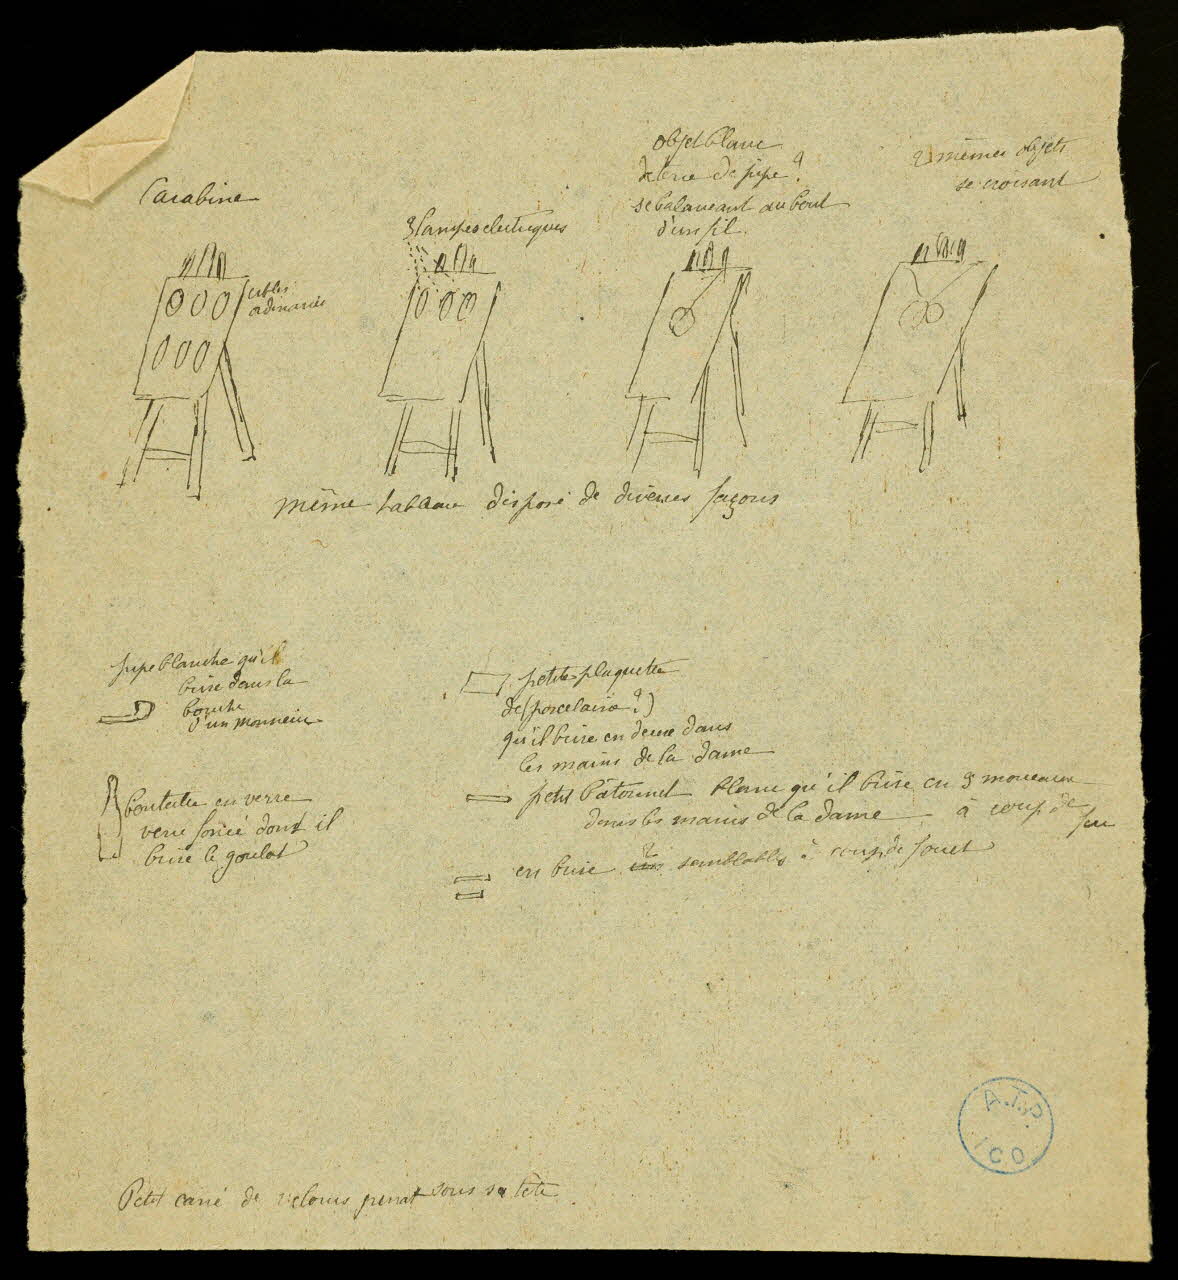 Carabine
cibles
ordinaires
3 lampes electriques
objet blanc
de terre de pipe ?
se balançant au bout
d'un fil
2 mêmes objets
se croisant
même tableau disposé de diverses façons
pipe blanche qu'il
brise dans la
bouche
d'un monsieur
bouteille en verre
verre foncé dont il
brise le goulot
petite plaquette
de (porcelaine ?)
qu'il brise en deux dans
les mains de la dame
petit bâtonnet blanc qu'il brise en 3 morceaux
dans les mains de la dame à coup de
feu
en brise 2 semblables à coup de fouet
A.T.P.
ICO
Petit carré de velours sous sa tête